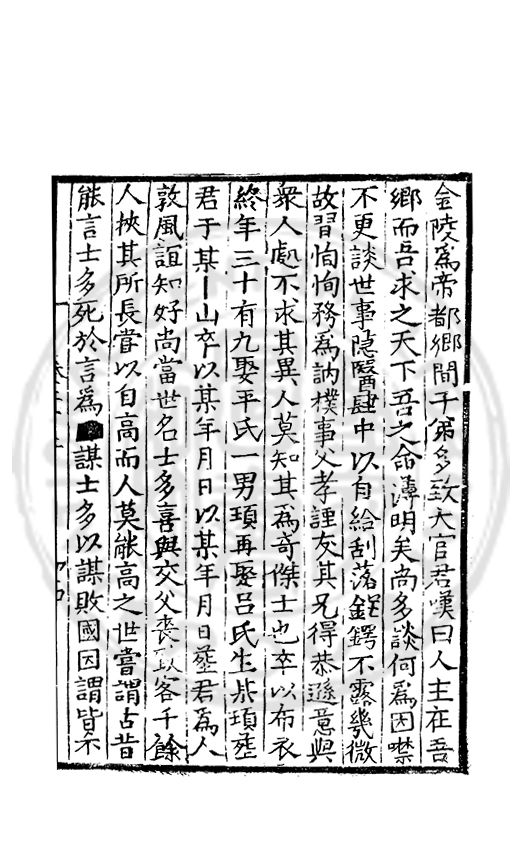 金陵爲帝都鄉間子弟多致大官君嘆曰人主在吾
鄉而吾求之天下吾之命薄明矣尚多談何爲因噤
不更談世事隱醫肆中以自給刮落鋩鍔不露幾微
故習恂恂務爲訥樸事父孝謹友其兄得恭遜意與
衆人處不求其異人莫知其爲奇傑士也卒以布衣
終年三十有九娶平氏一男頊再娶呂氏生
頊塟
君于某山卒以某年月日以某年月日塟君爲人
敦風誼知好尚當世名士多喜與交父喪致客千餘
人挾其所長嘗以自高而人莫能高之世嘗謂古昔
能言士多死於言爲謀士多以謀敗國因謂皆不